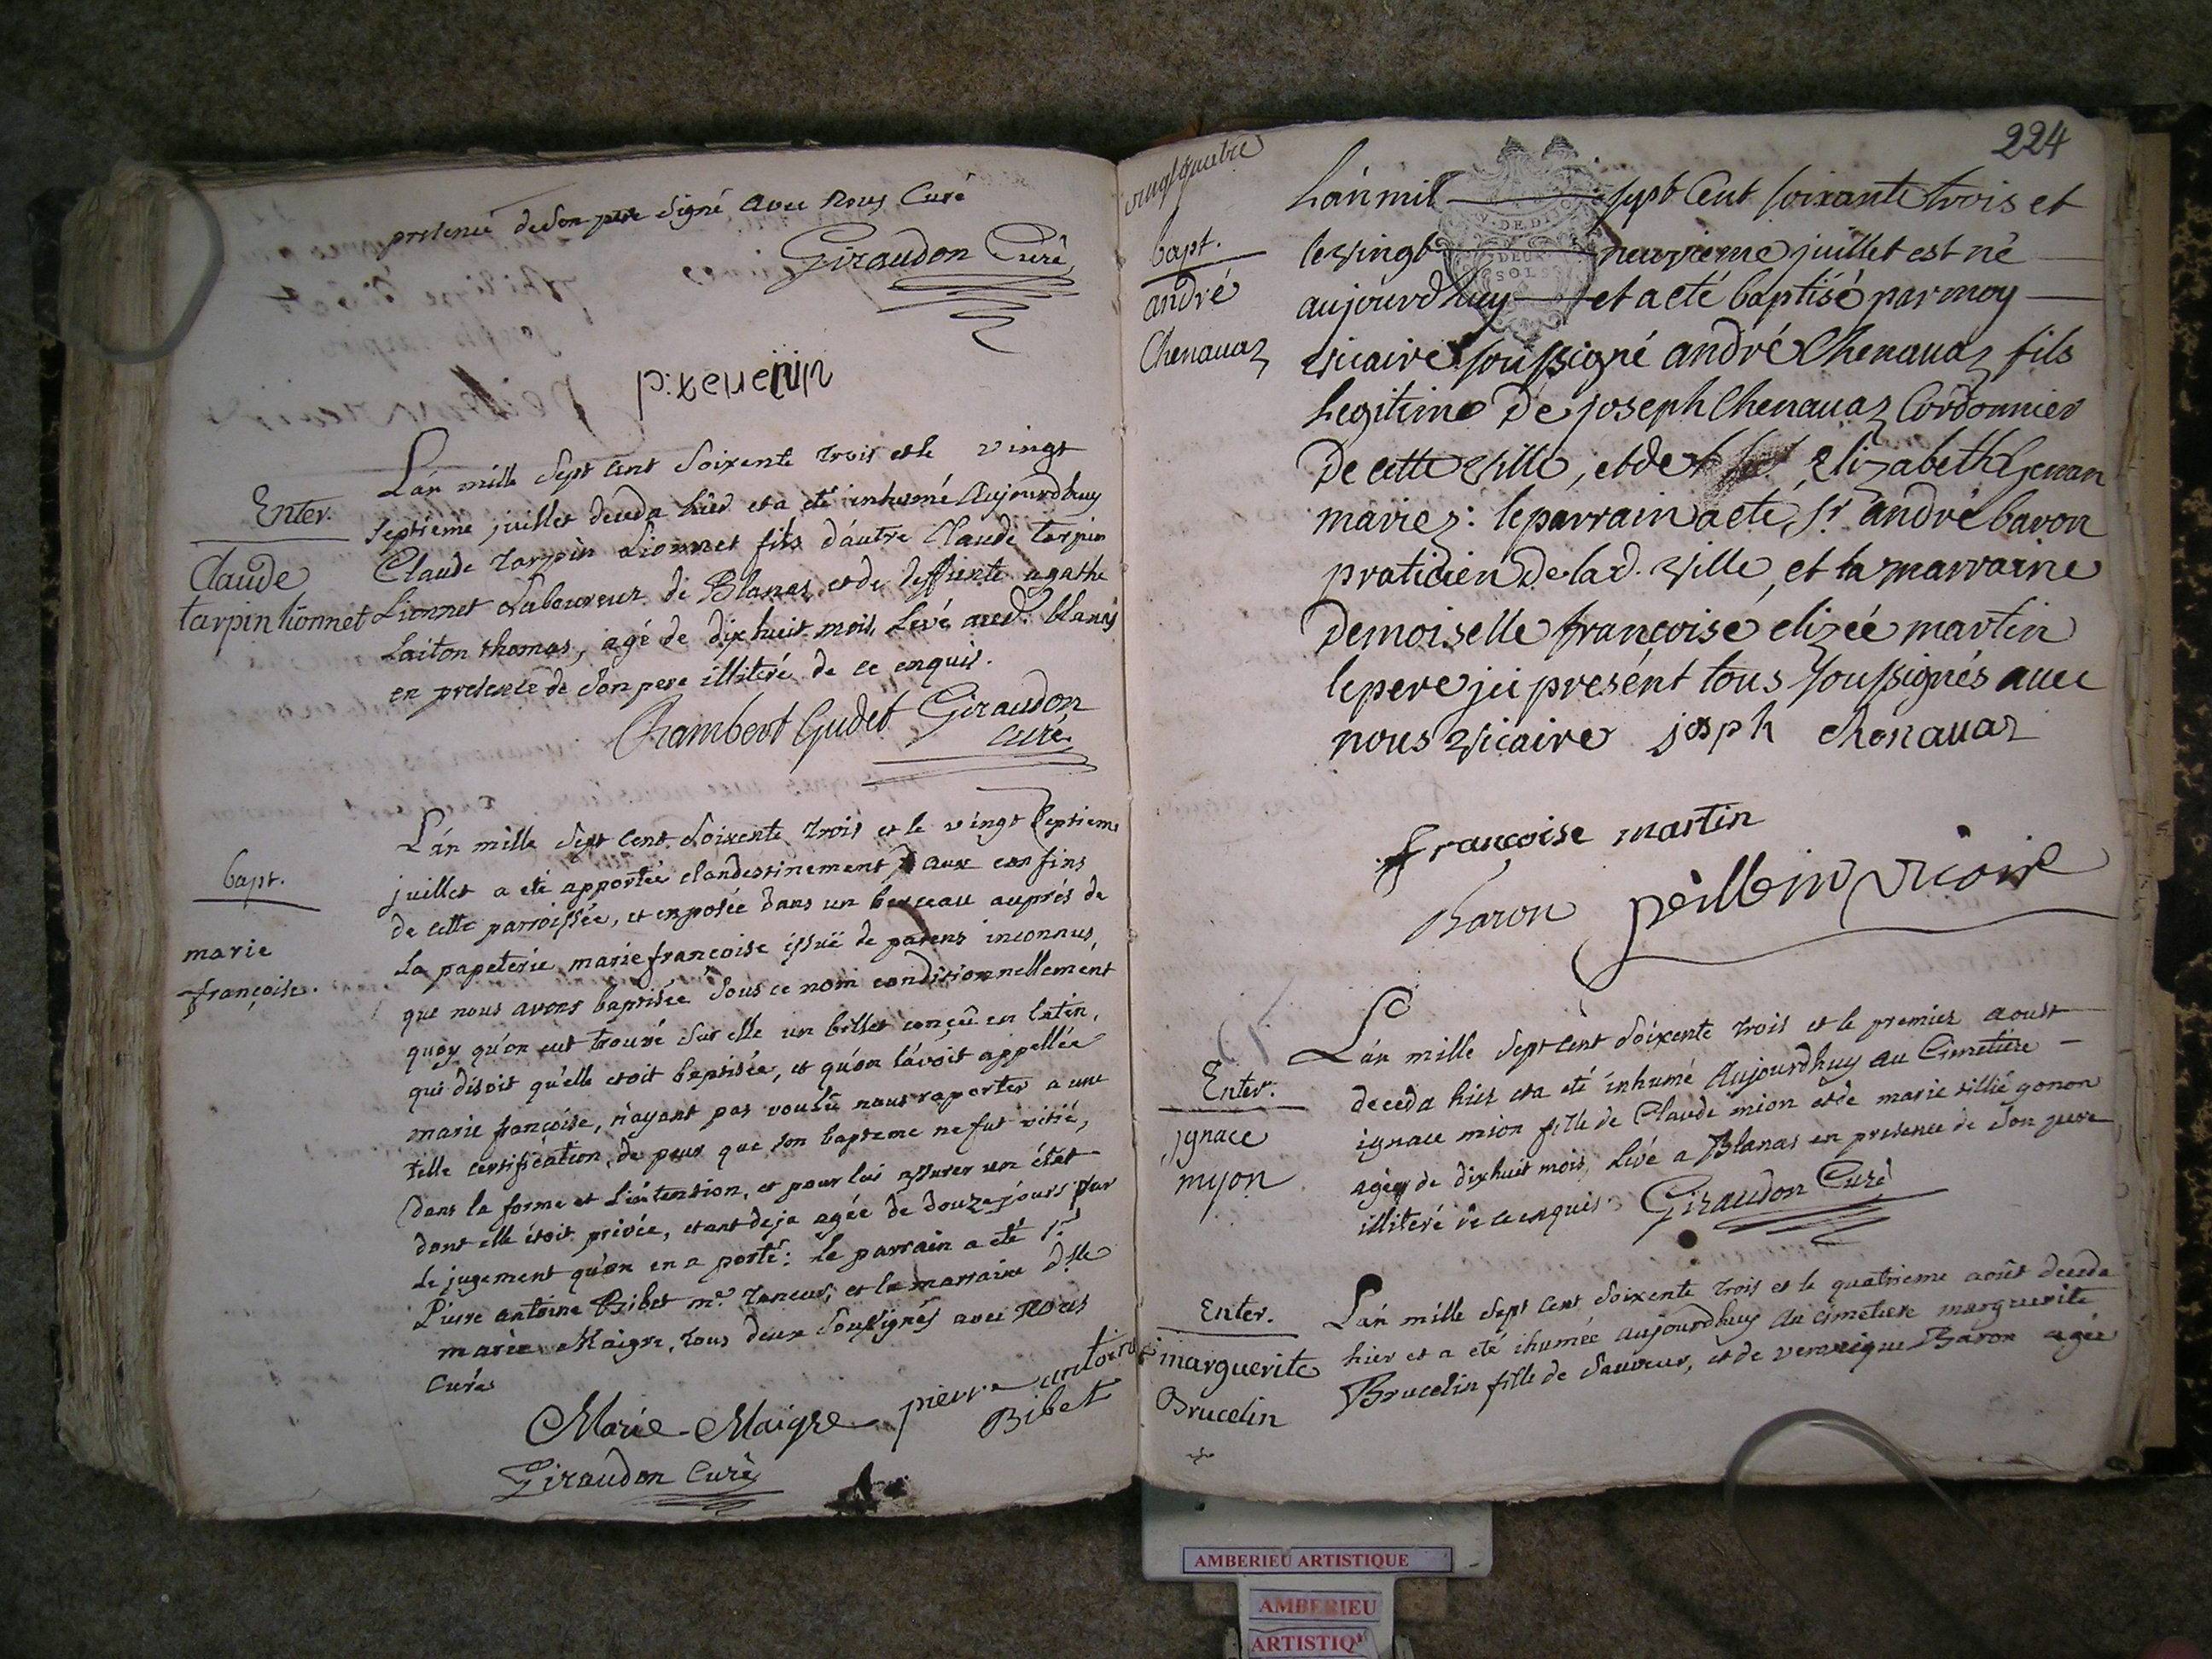 presence de son pere signé avec nous Curé
Giraudon Curé
Enter.
Claude
tarpin lionnet
L'an mille sept cent soixente trois et le vingt
septieme juillet deceda hier et a eté inhumé Aujourdhuy
Claude tarpin Lionnet fils d'autre Claude tarpin
Lionnet Laboureur de Blanas et de deffunte agathe
Laiton thomas, agé de dix huit mois, Levé aud. blanas
en presence de son pere illiteré de ce enquis.
Chambert Gudet Giraudon
curé
bapt.
marie
françoise.
L'an mille sept cent soixente trois et le vingt septieme
juillet a eté apportée clandestinement aux confins
de cette parroissée, et exposée dans un berceau auprés de
La papeterie marie françoise issuë de parens inconnus,
que nous avons baptisée sous ce nom conditionnellement
quoy qu'on eut trouvé sur elle un billet conçû en latin,
qui disoit qu'elle etoit baptisée, et qu'on l'avoit appellée
marie françoise, n'ayant pas voulû nous raporter a une
telle certification, de peur que son bapteme ne fut vitié,
dans la forme et L'intention, et pour lui assurer un état
dont elle étoit privée, etant deja agée de douze jours par
Le jugement qu'on en a porté: Le parrain a eté sr.
Pierre antoine Bibet me. Taneur, et la marraine dlle
marie Maigre, tous deux soussignés avec nous
Curés
Marie-Maigre pierre antoine
Bibet
Giraudon Curé
224
vingtquatre
bapt.
andré
Chenauaz
L'an mil sept Cent soixante trois et
le vingt neuvieme juillet est né
aujourd huy et a eté baptisé par moy
vicaire soussigné andré Chenauaz fils
Legitime De joseph Chenauaz Cordonnier
De cette ville, et de Elizabeth Genan
mariez: le parrain a eté, sr andré baron
praticien De lad. ville, et la marraine
demoiselle françoise elizée martin
le pere ici présent tous soussignés avec
nous vicaire josph chenauaz
francoise martin
Baron peillein vicaire
Enter.
jgnace
myon
L'an mille sept cent soixente trois et le premier aoust
deceda hier et a eté inhumé Aujourdhuy au Cimetiere
ignace mion fille de Claude mion et de marie tillié gonon
agée de dixhuit mois, Levé a Blanas en presence de son pere
illiteré de ce enquis. Giraudon Curé
Enter.
marguerite
Brucelin
L'an mille sept cent soixente trois et le quatrieme août deceda
hier et a eté ihumée aujourdhuy au cimetiere marguerite
Brucelin fille de Sauveur, et de veronique Baron agée
AMBERIEU ARTISTIQUE
AMBERIEU
ARTISTIQ